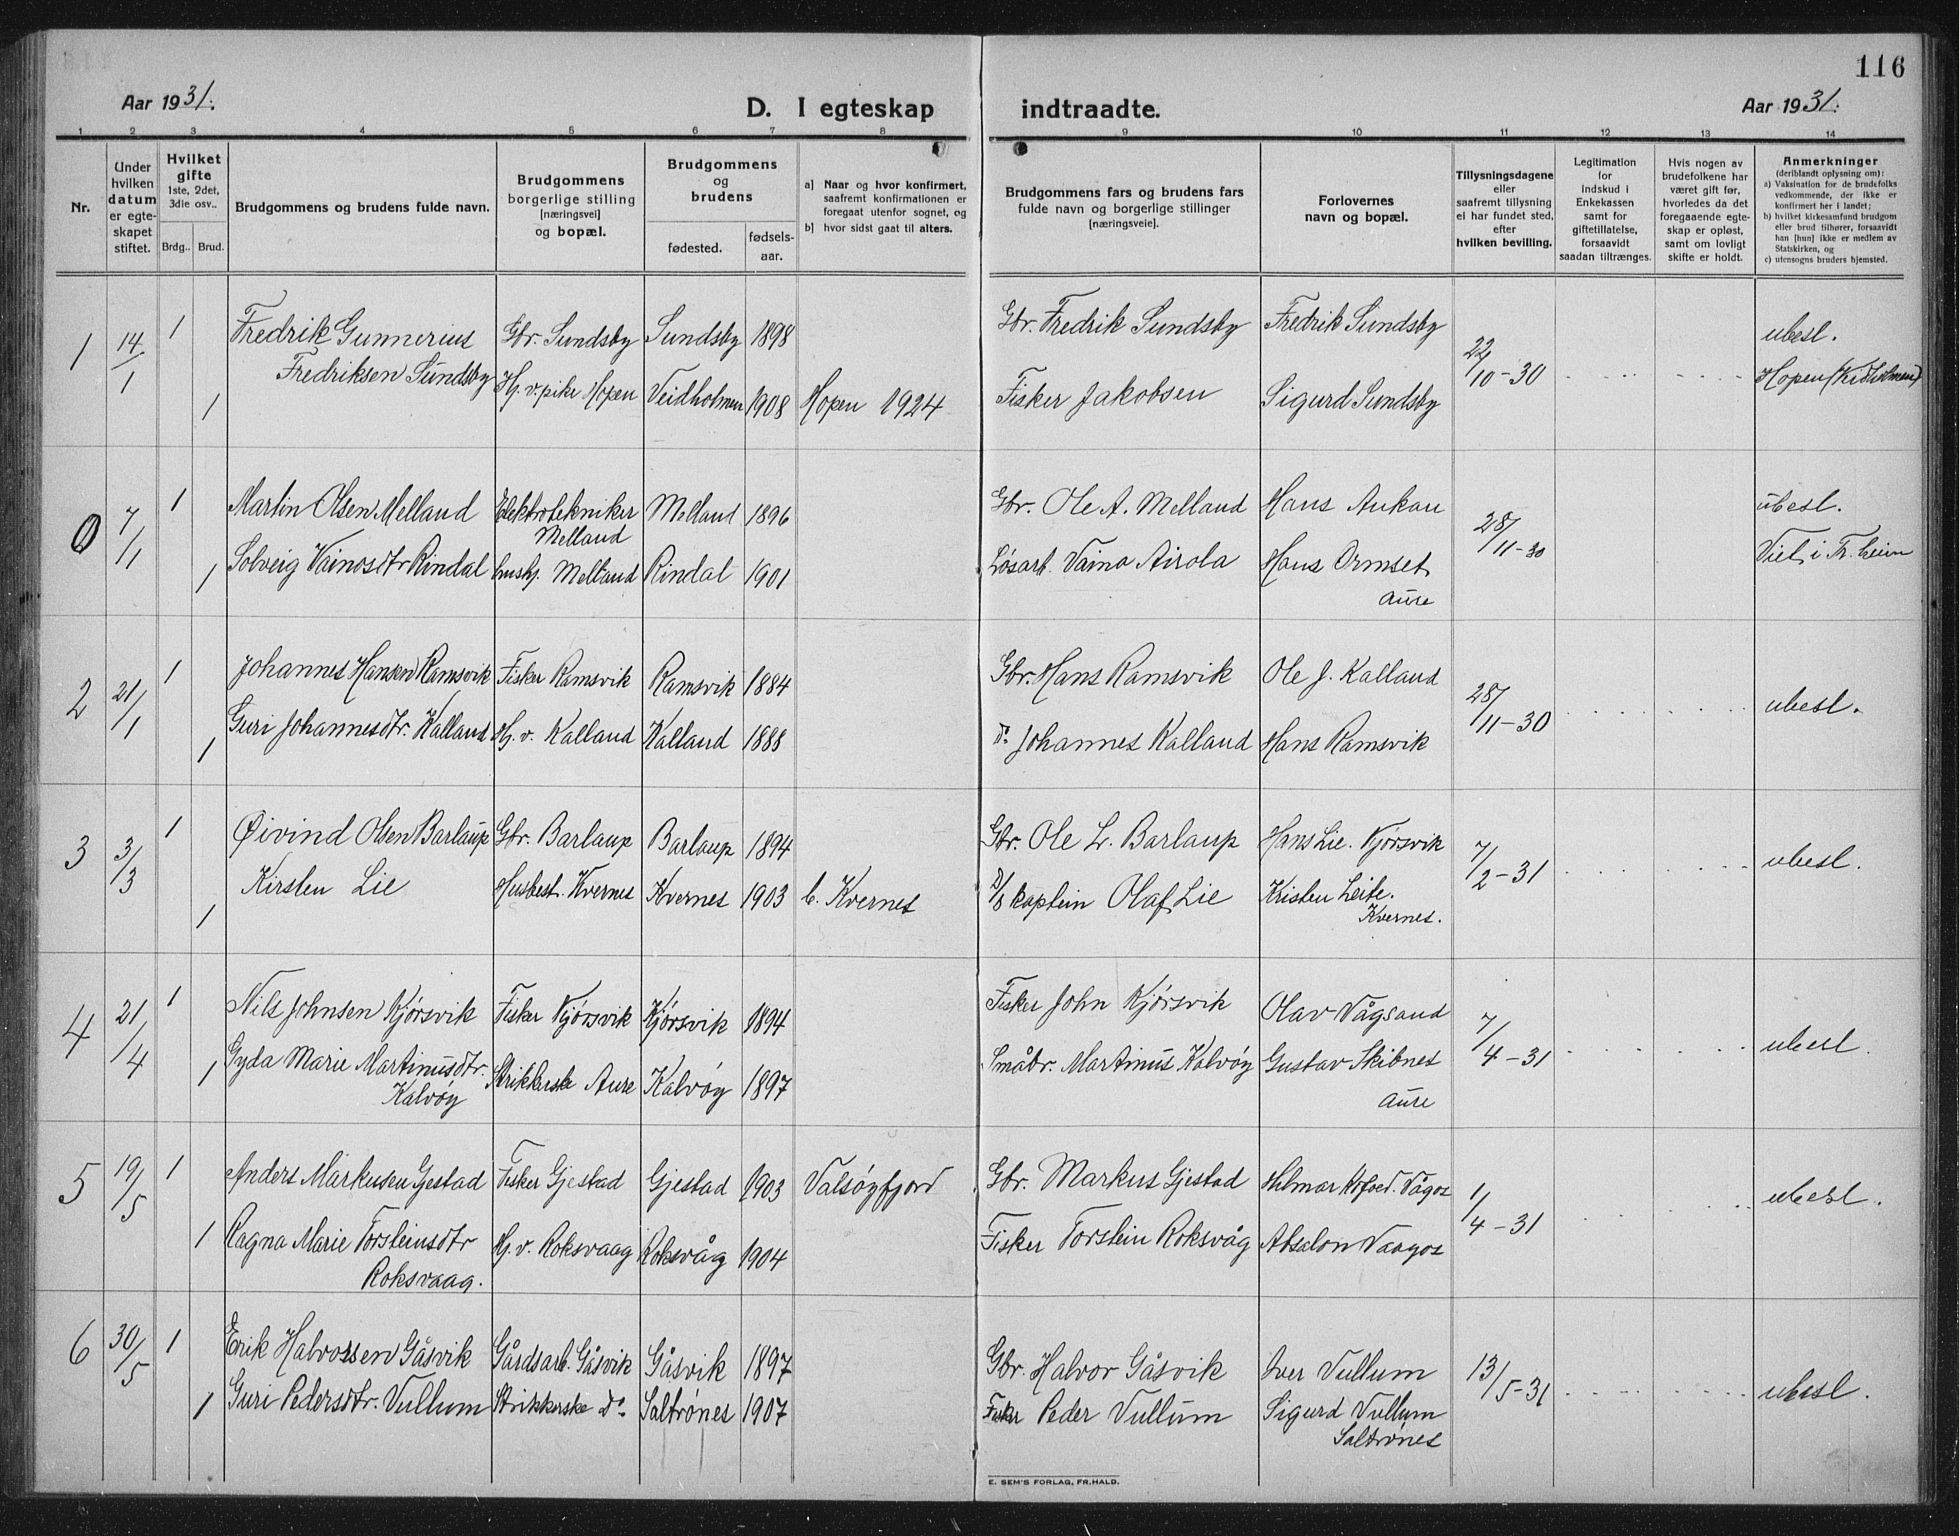 116
Aar 1931.
D. I egteskap indtraadte.
Aar 1931.
1 2 3 4 5 6 7 8 9 10 11 12 13 14
Nr.
Under hvilken datum er egteskapet stiftet.
Hvilket gifte
1ste, 2det, 3die osv..
Brdg.. Brud.
Brudgommens og brudens fulde navn.
Brudgommens borgerlige stilling [næringsvei] og bopæl.
Brudgommens og brudens
fødested.
fødselsaar.
a) Naar og hvor konfirmert, saafremt konfirmationen er foregaat utenfor sognet, og
b) hvor sidst gaat til alters.
Brudgommens fars og brudens fars fulde navn og borgerlige stillinger [næringsveie].
Forlovernes navn og bopæl.
Tillysningsdagene eller saafremt tillysning ei har fundet sted, efter hvilken bevilling.
Legitimation for indskud i Enkekassen samt for giftetillatelse, forsaavidt saadan tiltrænges.
Hvis nogen av brudefolkene har været gift før, hvorledes da det foregaaende egteskap er opløst, samt om lovligt skifte er holdt.
Anmerkninger
(deriblandt oplysning om):
a) Vaksination for de brudefolks vedkommende, der ikke er konfirmert her i landet;
b) hvilket kirkesamfund brudgom eller brud tilhører, forsaavidt han [hun] ikke er medlem av Statskirken, og
c) utensogns bruders hjemsted.
1 14/1 1 Fredrik Gunnerius Fredriksen Sundsby Gbr. Sundsby Sundsby 1898 Gbr. Fredrik Sundsby Fredrik Sundsby 22/10-30 ubesl.
1 Hj. v. pike Hopen Veidholmen 1908 Hopen 1924 Fisker Jakobsen Sigurd Sundsby Hopen
0 7/1 1 Martin Olsen Melland Elektrotekniker Melland Melland 1896 Gbr. Ole A. Melland Hans Aukan 28/11-30 ubesl.
1 Solveig Vainosdtr Rindal hushj. Melland Rindal 1901 Løsarb. Vaino Airola Hans Ormset Aure Viet i Tr.heim
2 21/1 1 Johannes Hansen Ramsvik Fisker Ramsvik Ramsvik 1884 Gbr. Hans Ramsvik Ole J. Kalland 28/11-30 ubesl.
1 Guri Johannesdtr. Kalland Hj. v. Kalland Kalland 1888 Do Johannes Kalland Hans Ramsvik
3 3/3 1 Øivind Olsen Barlaup Gbr. Barlaup Barlaup 1894 Gbr. Ole L. Barlaup Hans Lie. Kjørsvik 7/2-31 ubesl.
1 Kirsten Lie Husbest. Kvernes Kvernes 1903 b. Kvernes D/S kaptein Olaf Lie Kristen Leite. Kvernes.
4 21/4 1 Nils Johnsen Kjørsvik Fisker Kjørsvik Kjørsvik 1894 Fisker John Kjørsvik Olav Vågsand 7/4-31 ubesl.
1 Gyda Marie Martinusdtr. Kalvøy Strikkerske Aure Kalvøy 1897 Småbr. Martinus Kalvøy Gustav Skibnes Aure
5 19/5 1 Anders Markusen Gjestad Fisker Gjestad Gjestad 1903 Valsøyfjord Gbr. Markus Gjestad Hilmar Kofoed. Vågos 1/4-31 ubesl.
1 Ragna Marie Torsteinsdtr Roksvaag. Hj. v. Roksvaag Roksvåg 1904 Fisker Torstein Roksvåg Absalon Vaagos
6 30/5 1 Erik Halvorsen Gåsvik Gårdsarb. Gåsvik Gåsvik 1897 Gbr. Halvor Gåsvik Iver Vullum 13/5-31 ubesl.
1 Guri Pedersdtr. Vullum Strikkerske Do Saltrønes 1907 Fisker Peder Vullum Sigurd Vullum Saltrønes
E. SEM'S FORLAG, FR.HALD.